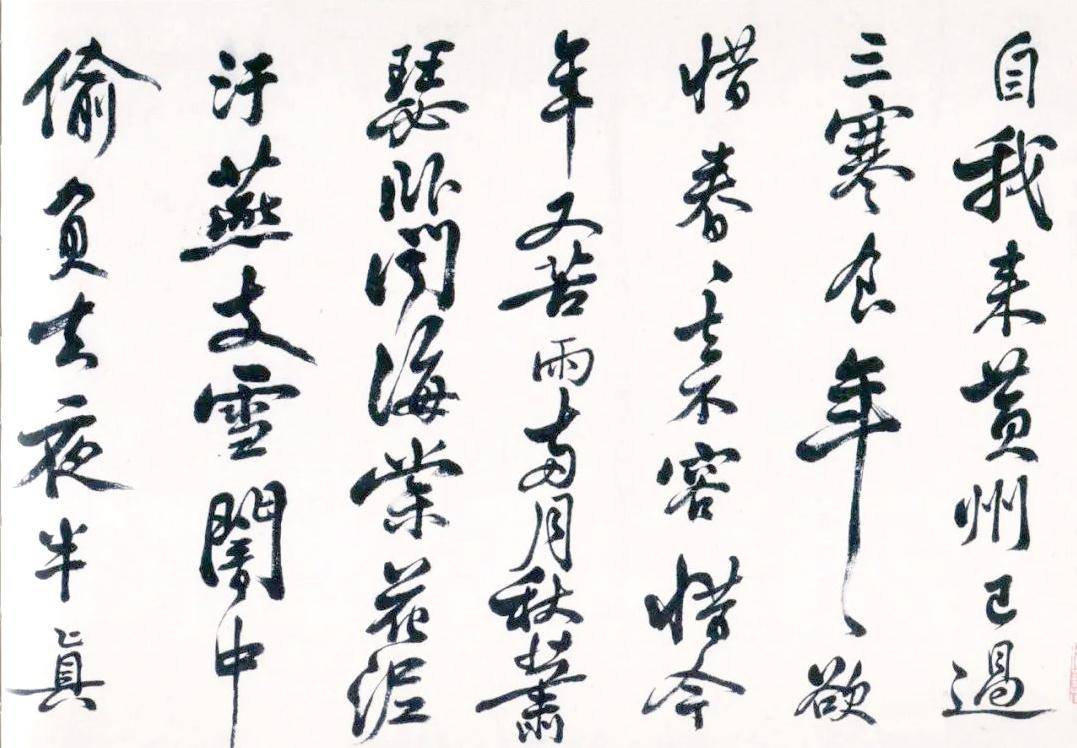 自我来黄州已過
三寒食年〻欲
惜春〻去不容惜今
年又苦雨兩月秋蕭
瑟卧聞海棠花泥
汙燕支雪闇中
偷負去夜半真